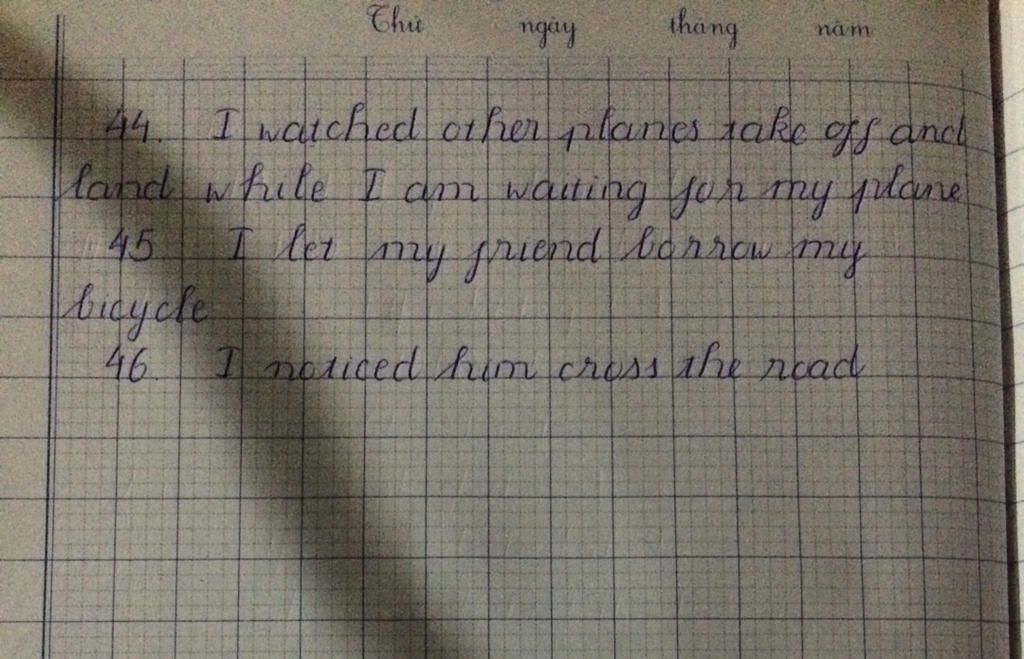 Thứ ngày tháng năm
44. I watched other planes take off and
land while I am waiting for my plane
45 I let my friend borrow my
bicycle
46. I noticed him cross the road